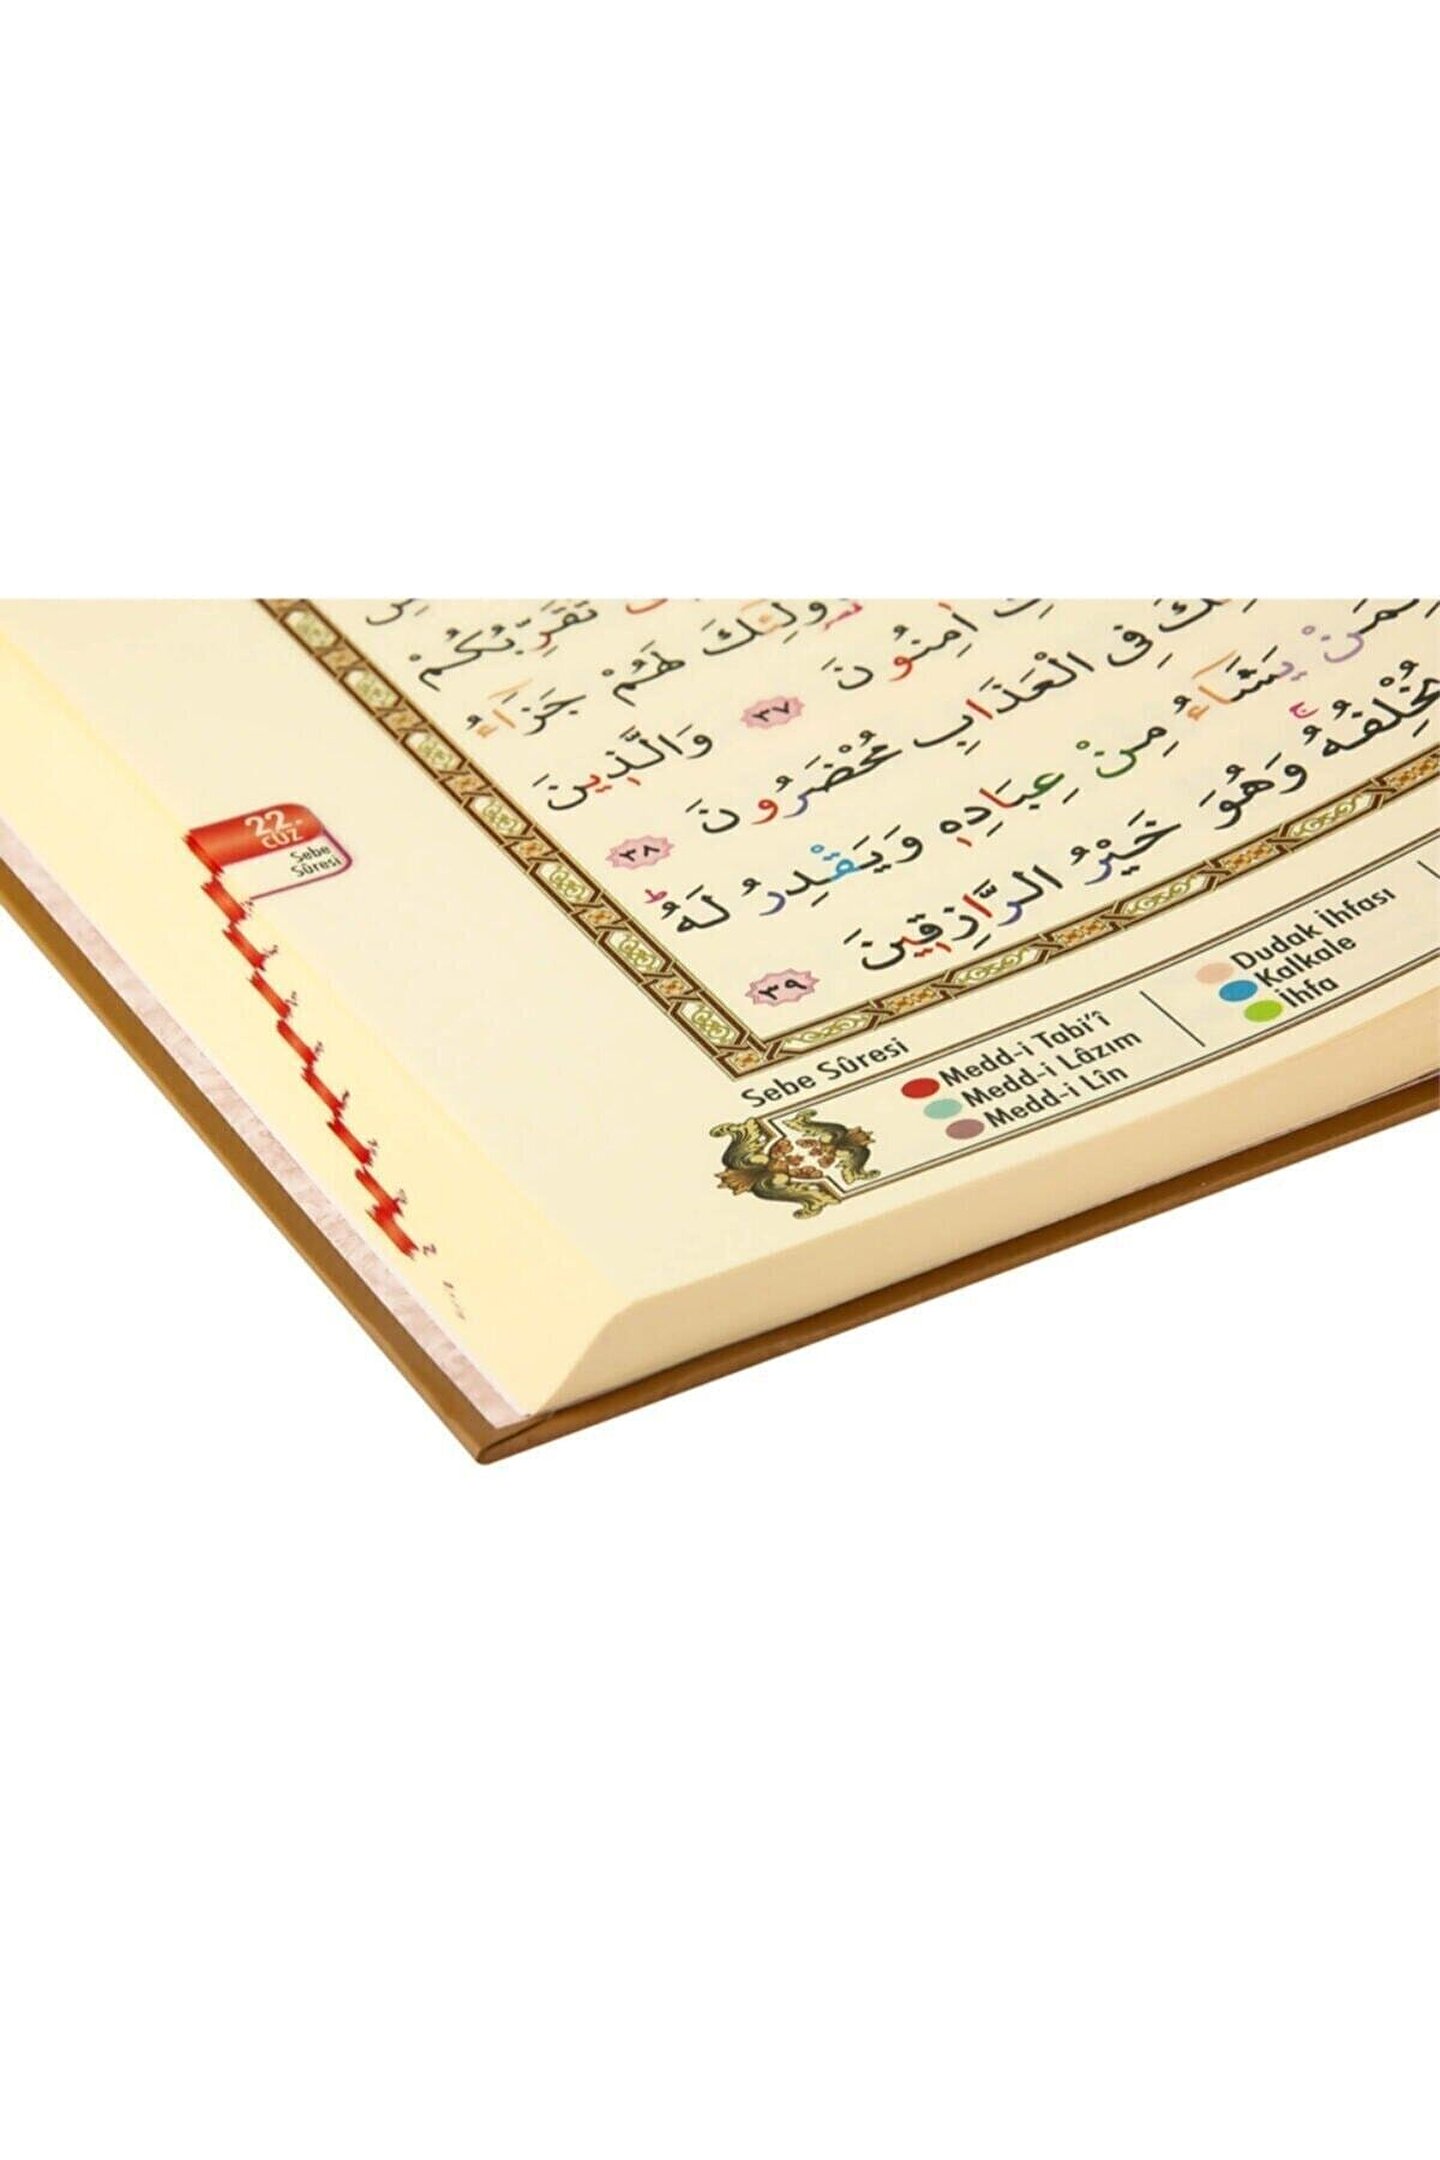 تُقَرِّبُكُمْ
لَهُمْ جَزَٓاءُ
اٰمِنُونَ ﴿٣٧﴾ وَالَّذِينَ
فِي الْعَذَابِ مُحْضَرُونَ ﴿٣٨﴾
يَشَٓاءُ مِنْ عِبَادِهٖ وَيَقْدِرُ لَهُ ط
يُخْلِفُهُ ج وَهُوَ خَيْرُ الرَّازِقِينَ ﴿٣٩﴾
22.
CÜZ
Sebe
Sûresi
Sebe Sûresi
Medd-i Tabi'î
Medd-i Lâzım
Medd-i Lîn
Dudak İhfası
Kalkale
İhfa